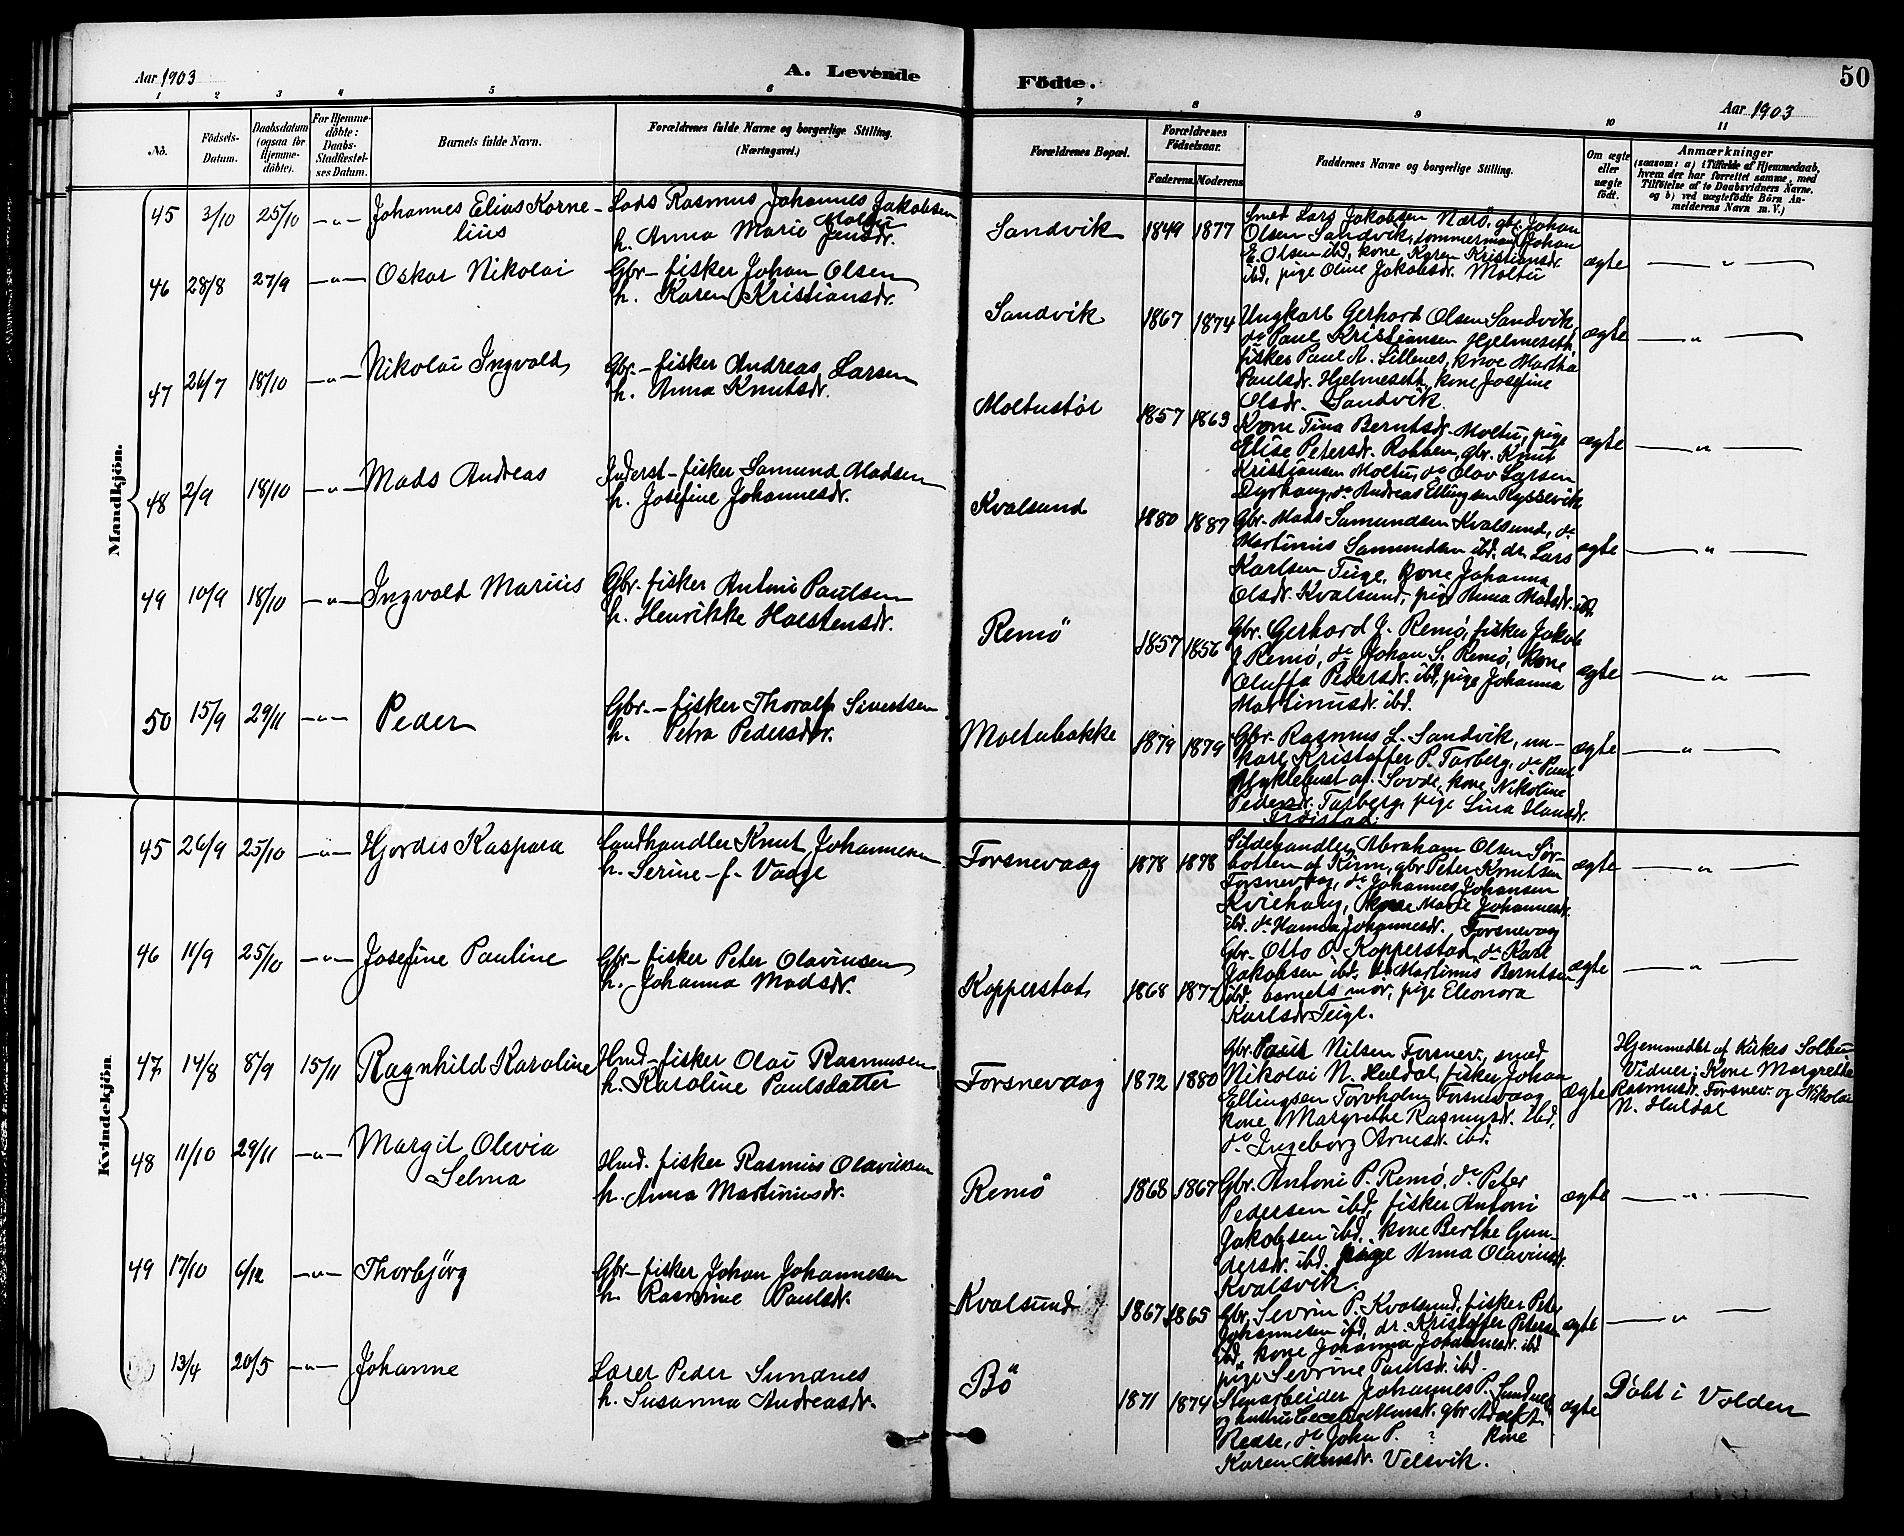 Aar 1903
A. Levende
Födte.
50
Aar 1903
1 2 3 4 5 6 7 8 9 10 11
No.
Födsels-
Datum.
Daabsdatum
(ogsaa for
Hjemme-
döbte).
For Hjemme-
döbte:
Daabs-
Stadfæstel-
ses Datum.
Barnets fulde Navn.
Forældrenes fulde Navne og borgerlige Stilling.
(Næringsvei.)
Forældrenes Bopæl.
Forældrenes
Födselsaar.
Faderens. Moderens.
Faddernes Navne og borgerlige Stilling.
Om ægte
eller
uægte
født.
Anmærkninger
(saasom: a) i Tilfælde af Hjemmedaab,
hvem der har forrettet samme, med
Tilföielse af to Daabsvidners Navne.
og b) ved uægtefödte Börn An-
melderens Navn m. V.)
Mandkjön.
45 3/10 25/10 —"— Johannes Elias Korne-
lius
Lods Rasmus Johannes Jakobsen
Moltu
h. Anna Marie Jensdr.
Sandvik 1849 1877
Smed Lars Jakobsen Nærö, gbr. Johan
Olsen Sandvik, tømmermand Johan
E. Olsen ibd, kone Karen Kristiansdr.
ibd, pige Oline Jakobsdr. Moltu
ægte — " —
46 28/8 27/9 —"— Oskar Nikolai
Gbr-fisker Johan Olsen
h. Karen Kristiansdr.
Sandvik 1867 1874
Ungkarl Gerhard Olsen Sandvik,
do Paul Kristiansen Hjelmesett,
fisker Paul A. Lillenes, kone Martha
Paulsdr. Hjelmesett, kone Josefine
Olsdr. Sandvik.
ægte — " —
47 26/7 18/10 —"— Nikolai Ingvald
Gbr-fisker Andreas Larsen
h. Anna Knutsdr.
Moltustöl 1857 1863
Kone Tina Berntsdr. Moltu, pige
Elise Petersdr. Robben, gbr. Knut
Kristiansen Moltu, do Olav Larsen
Dyrhaug, do Andreas Ellingsen Ryssevik
ægte — " —
48 2/9 18/10 —"— Mads Andreas
Inderst-fisker Samund Madsen
h. Josefine Johannesdr.
Kvalsund 1880 1887
Gbr. Mads Samundsen Kvalsund, do
Martinus Samundsen ibd. dr. Lars
Karlsen Teige, kone Johanna
Olsdr. Kvalsund, pige Anna Madsdr. ibd.
ægte — " —
49 10/9 18/10 —"— Ingvald Marius
Gbr-fisker Antoni Paulsen
h. Henrikke Holstensdr.
Remö 1857 1856
Gbr. Gerhard J. Remö, fisker Jakob
J. Remö, do Johan S. Remö, kone
Oluffa Pedersdr. ibd, pige Johanna
Martinusdr. ibd.
ægte — " —
50 15/9 29/11 —"— Peder
Gbr.-fisker Thoralf Sivertsen
h. Petra Pedersdr.
Moltubakke 1879 1879
Gbr. Rasmus L. Sandvik, un-
karl Kristoffer P. Tarberg, do Paul
Myklebust af Sovde, kone Nikoline
Pedersdr. Tarberg, pige Lina Hansdr.
Fröistad.
ægte — " —
Kvindekjön.
45 26/9 25/10 —"— Hjordis Kaspara
Landhandler Knut Johannesen
h. Serine f. Vaage
Torsnevaag 1878 1878
Sildehandler Abraham Olsen Sör-
botten af Kinn, gbr Peter Knutsen
Torsnevaag, do Johannes Johansen
Kviehaug, kone Marie Johannesdr.
ibd. do Hanna Johannesdr. Torsnevaag
ægte — " —
46 11/9 25/10 —"— Josefine Pauline
Gbr-fisker Peter Olavinsen
h. Johanna Madsdr.
Kopperstad 1868 1877
Gbr. Otto O. Kopperstad, do Karl
Jakobsen ibd. do Martinus Berntsen
ibd. barnets mor, pige Eleonora
Karlsdr Teige.
ægte — " —
47 14/8 8/9 15/11 Ragnhild Karoline
Hmd-fisker Olai Rasmusen
h. Karoline Paulsdatter
Torsnevaag 1872 1880
Gbr. Paul Nilsen Torsnev., smed
Nikolai N. Huldal, fisker Johan
Ellingsen Torvholm Torsnevaag
kone Margrethe Rasmusdr. ibd,
do Ingeborg Arnesdr. ibd.
ægte
Hjemmedbt af Kirkes
Vidner: Kone Margrethe
Rasmusdr. Torsnev. og Nikolai
N. Huldal
48 11/10 29/11 —"— Margit Olivia
Selma
Hmd. fisker Rasmus Olavinsen
h. Anna Martinusdr.
Remö 1868 1867
Gbr. Antoni P. Remö, do Peter
Pedersen ibd, fisker Antoni
Jakobsen ibd, kone Berthe Gun-
dersdr. ibd. pige Anna Olavinsdr.
Kvalsvik.
ægte — " —
49 17/10 6/12 —"— Thorbjörg
Gbr-fisker Johan Johannesen
h. Rasmine Paulsdr.
Kvalsund 1867 1865
Gbr. Sevrin P. Kvalsund, fisker Peter
Johannesen ibd, dr. Kristoffer Petersen
ibd, kone Johanna Johannesdr. ibd
pige Sevrine Paulsdr. ibd.
ægte — " —
13/4 20/5 —"— Johanne
Lærer Peder Sundnes
h. Susanna Andreasdr.
Bö 1871 1874
Stenarbeider Johannes P. Sundnes
og hustru gbr Adolf A.
do John P. ? kone
Karen Velsvik.
ægte Döbt i Volden